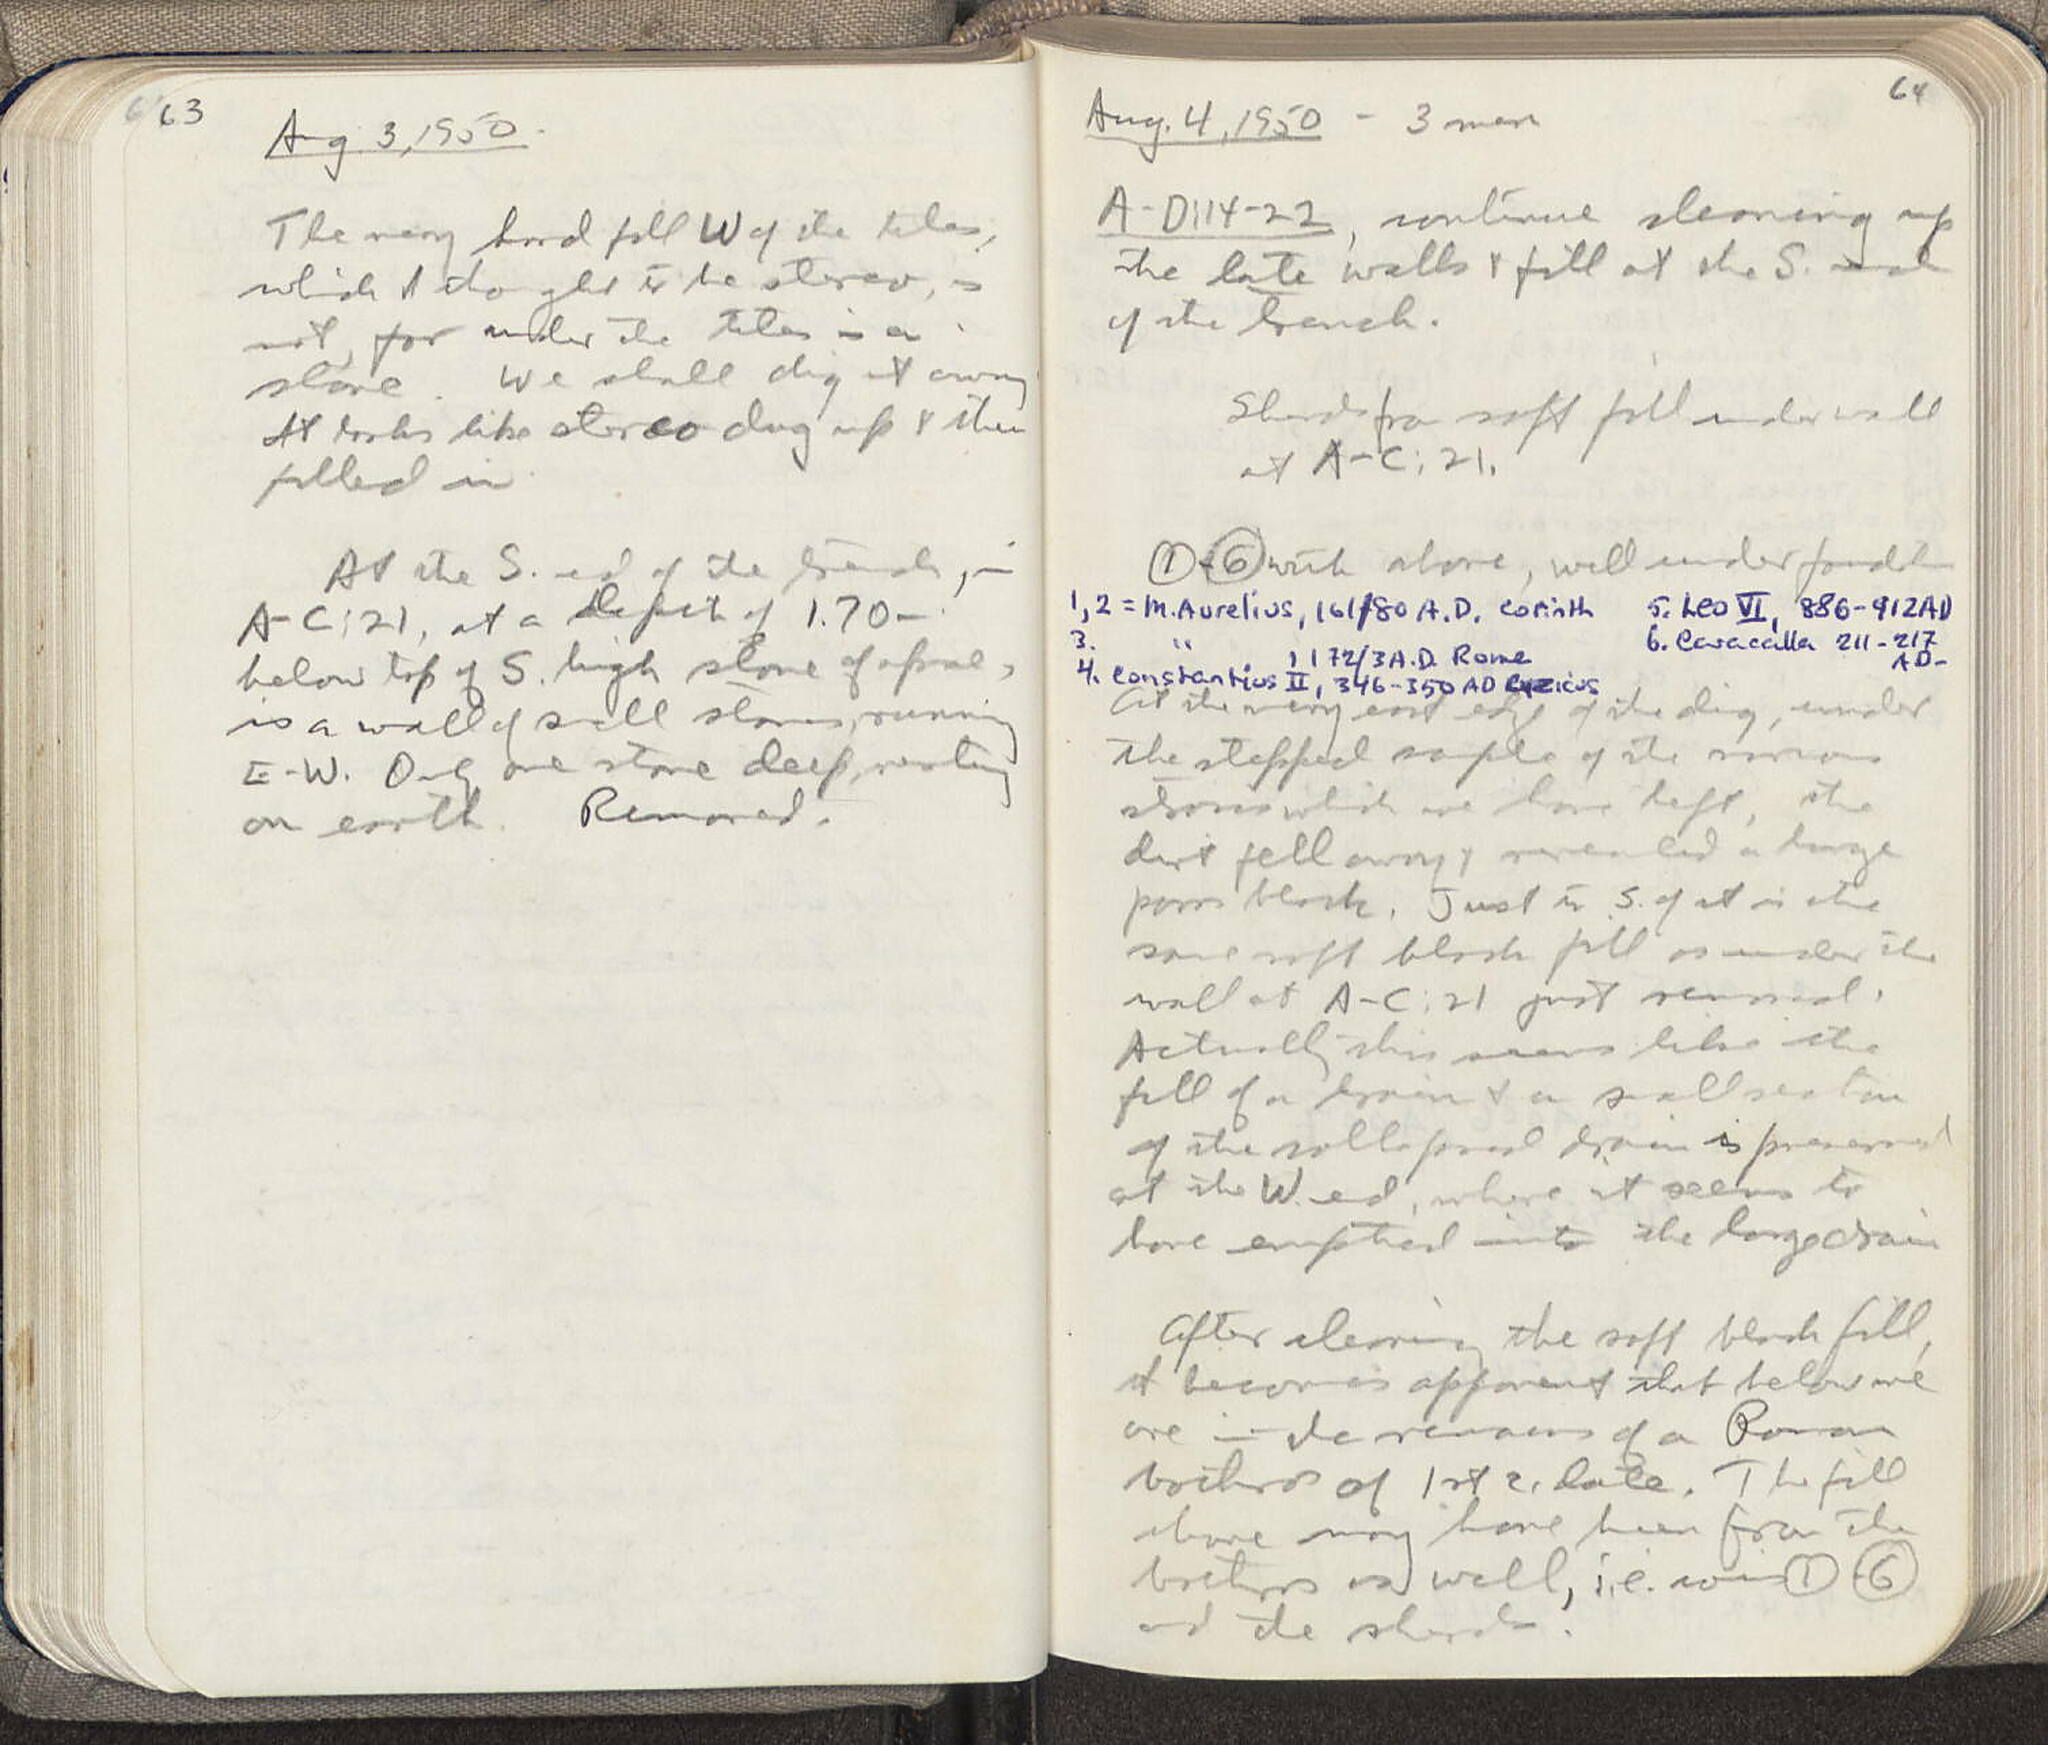 63
Aug. 3, 1950.
The very hard fill W of the tiles,
which I thought to be stereo, is
not, for under the tiles is a
stone. We shall dig it away
It looks like stereo dug up & then
filled in.
At the S. end of the trench, in
A-C:21, at a depth of 1.70
below top of S. high stone of apse,
is a wall of small stones, running
E-W. Only one stone deep, resting
on earth. Removed.
64
Aug. 4, 1950 - 3 men
A-D:14-22, continue cleaning up
the late walls & fill at the S. end
of the trench.
Sherds from soft fill under wall
at A-C:21.
① - ⑥ with above, well under
1,2 = M. Aurelius, 161/80 A.D. Corinth
3. " , 172/3 A.D. Rome
4. Constantius II, 346-350 AD Cyzicus
5. Leo VI, 886-912 AD
6. Caracalla 211-217 AD-
At the very east edge of the dig, under
the stepped sample of the various
which we have left, the
dirt fell away & revealed a large
poros block. Just to S. of it is the
same soft black fill as under the
wall at A-C:21 just removed.
Actually this seems like the
fill of a drain & a small section
of the collapsed drain is preserved
at the W. end, where it seems to
have emptied into the large drain
After cleaning the soft black fill,
it becomes apparent that below we
are in the remains of a Roman
bothros of 1st c. date. The fill
above may have been from the
bothros as well, i.e. coins ① - ⑥
and the sherds.